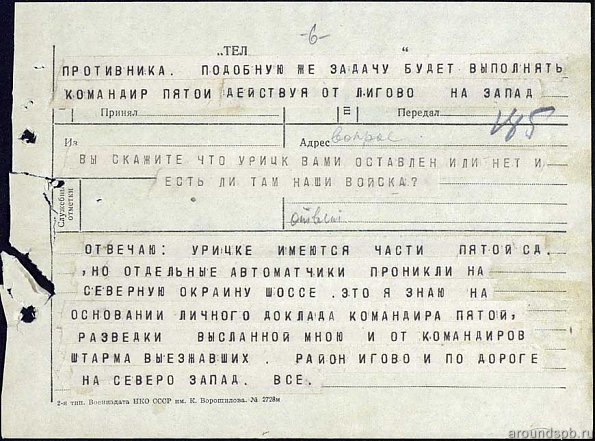 -6-
„ТЕЛ “
ПРОТИВНИКА. ПОДОБНУЮ ЖЕ ЗАДАЧУ БУДЕТ ВЫПОЛНЯТЬ
КОМАНДИР ПЯТОЙ ДЕЙСТВУЯ ОТ ЛИГОВО НА ЗАПАД
Принял П Передал
185
Из Адрес вопрос
ВЫ СКАЖИТЕ ЧТО УРИЦК ВАМИ ОСТАВЛЕН ИЛИ НЕТ И
ЕСТЬ ЛИ ТАМ НАШИ ВОЙСКА?
Служебн. отметки
ответ
ОТВЕЧАЮ: УРИЦКЕ ИМЕЮТСЯ ЧАСТИ ПЯТОЙ СД.
,НО ОТДЕЛЬНЫЕ АВТОМАТЧИКИ ПРОНИКЛИ НА
СЕВЕРНУЮ ОКРАИНУ ШОССЕ .ЭТО Я ЗНАЮ НА
ОСНОВАНИИ ЛИЧНОГО ДОКЛАДА КОМАНДИРА ПЯТОЙ,
РАЗВЕДКИ ВЫСЛАННОЙ МНОЮ И ОТ КОМАНДИРОВ
ШТАРМА ВЫЕЗЖАВШИХ . РАЙОН ИГОВО И ПО ДОРОГЕ
НА СЕВЕРО ЗАПАД. ВСЕ.
2-я тип. Воениздата НКО СССР им. К. Ворошилова. № 2728м
aroundspb.ru